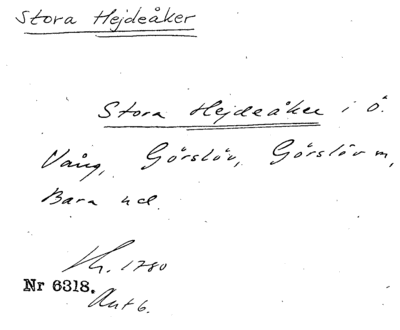 Stora Hejdeåker
Stora Hejdeåker i Ö.
Vång, Görslöv, Görslöv m,
Bara hd.
Hh. 1780
Nr 6318.
Akt 6.